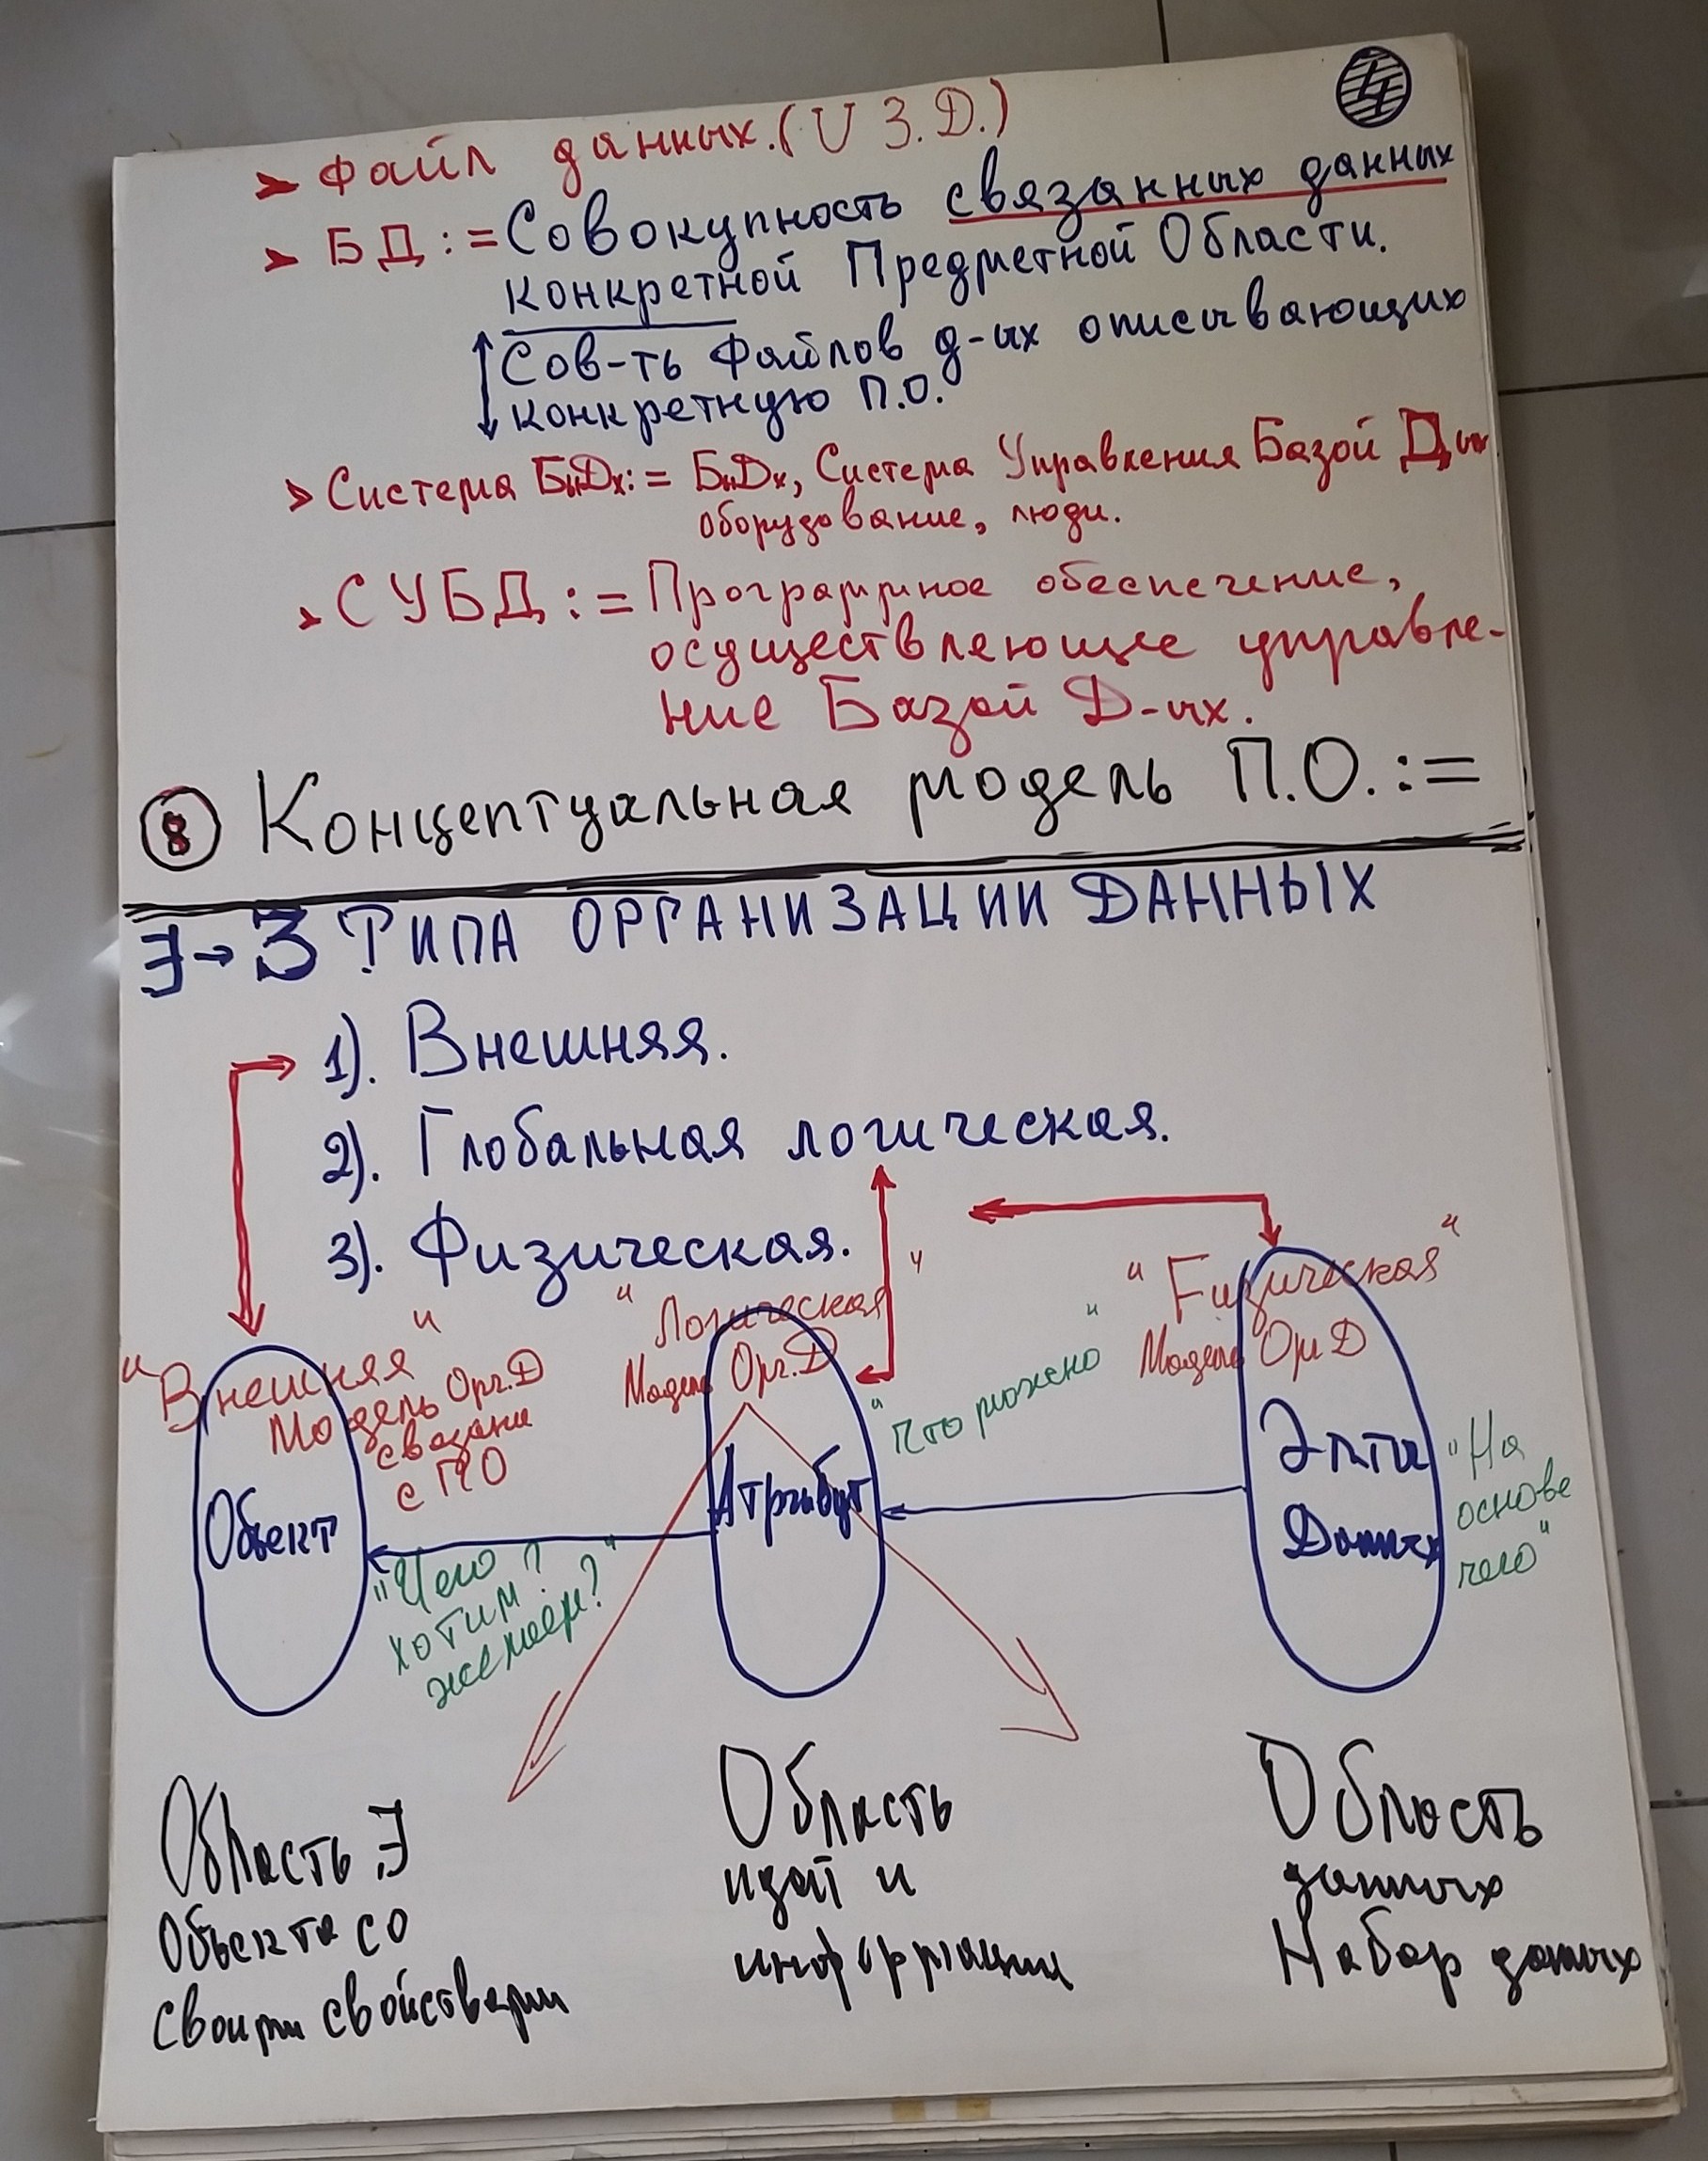 4
➢ Файл данных. (U З.Д.)
➢ БД := Совокупность связанных данных
конкретной Предметной Области.
Сов-ть Файлов д-ых описывающих
конкретную П.О.
➢ Система БнДх := БнДх, Система Управления Базой Д-ых
оборудование, люди.
➢ СУБД := Програмрное обеспечение,
осуществляющие управле-
ние Базой Д-ых.
8 Концептуальная модель П.О. :=
∃→3 ТИПА ОРГАНИЗАЦИИ ДАННЫХ
1). Внешняя.
2). Глобальная логическая.
3). Физическая.
"Внешняя"
Модель Орг.Д
связана
с ПО
Объект
"Чего?
хотим?
желаем?"
"Логическая"
Модель Орг.Д
Атрибут
"Что можено"
"Fизическая"
Модель Орг Д
Эл-ты
Данных
"На
основе
чего"
Область ∃
Объекта со
своими свойствами
Область
идей и
информации
Область
данных
Набор данных